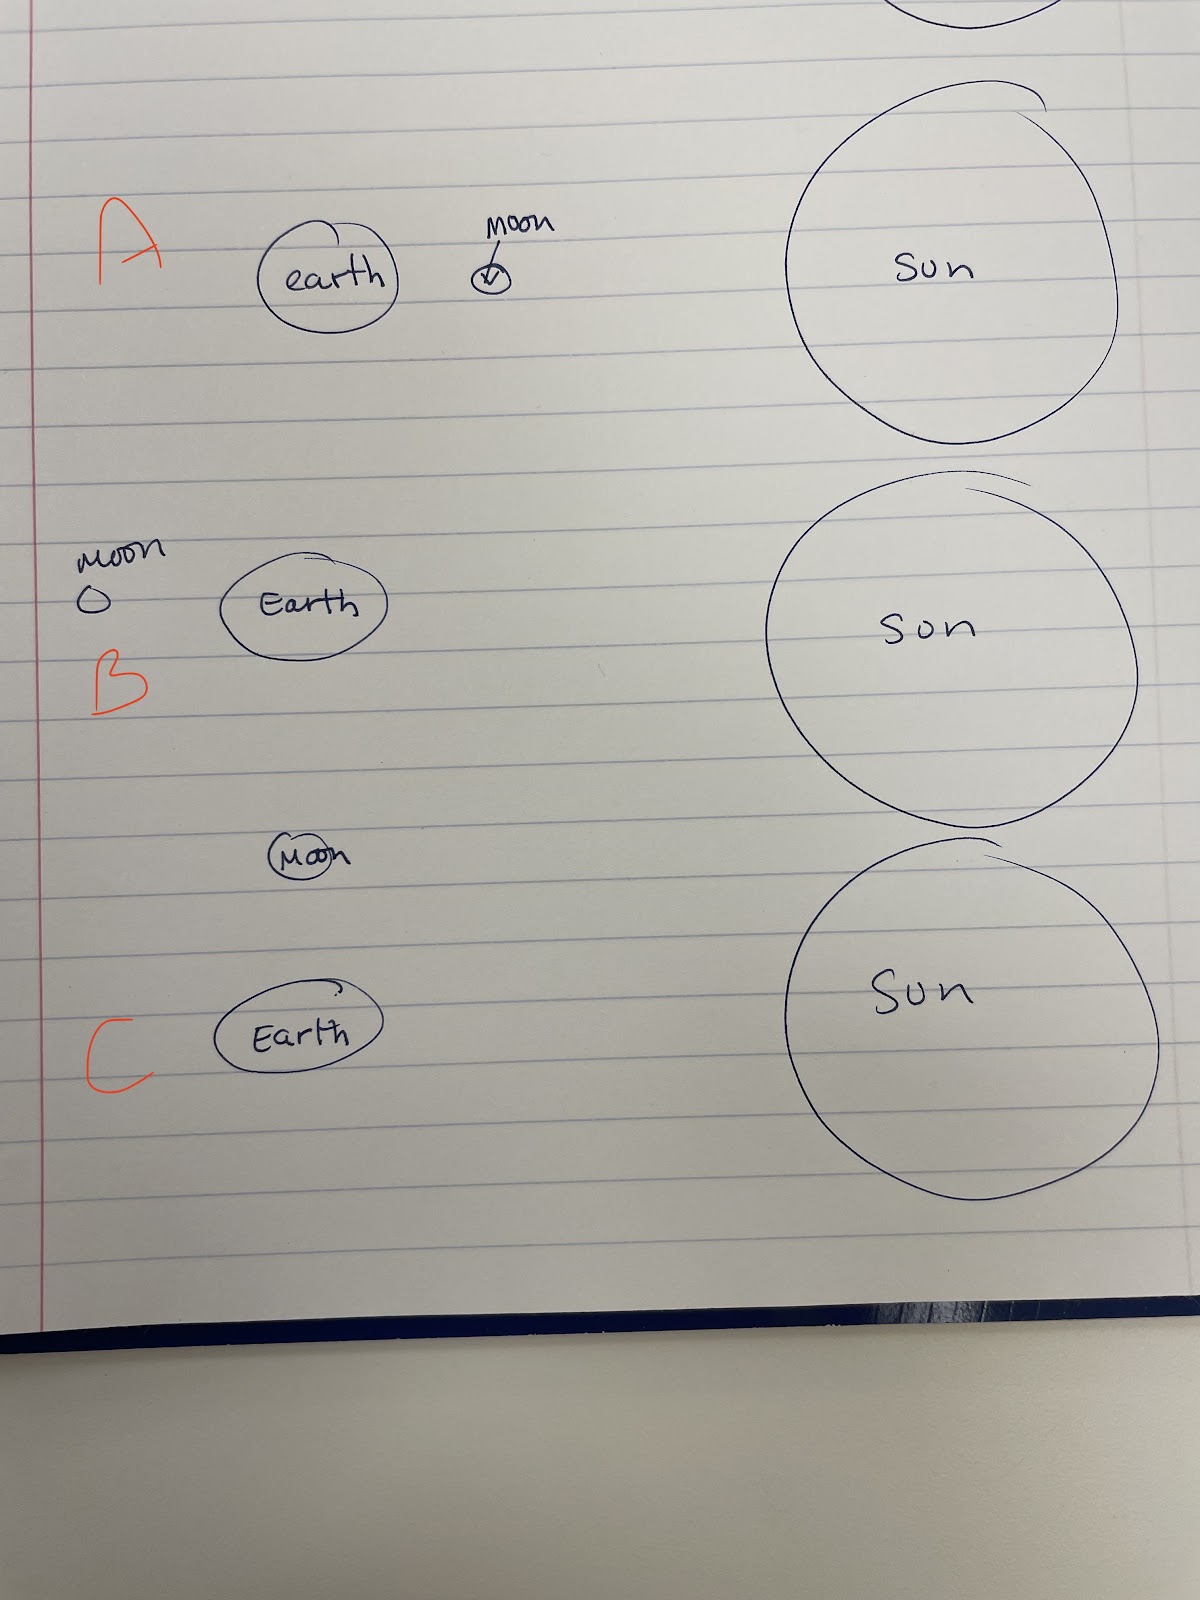 Moon
A
earth
Sun
Moon
Earth
Sun
B
Moon
Sun
Earth
C